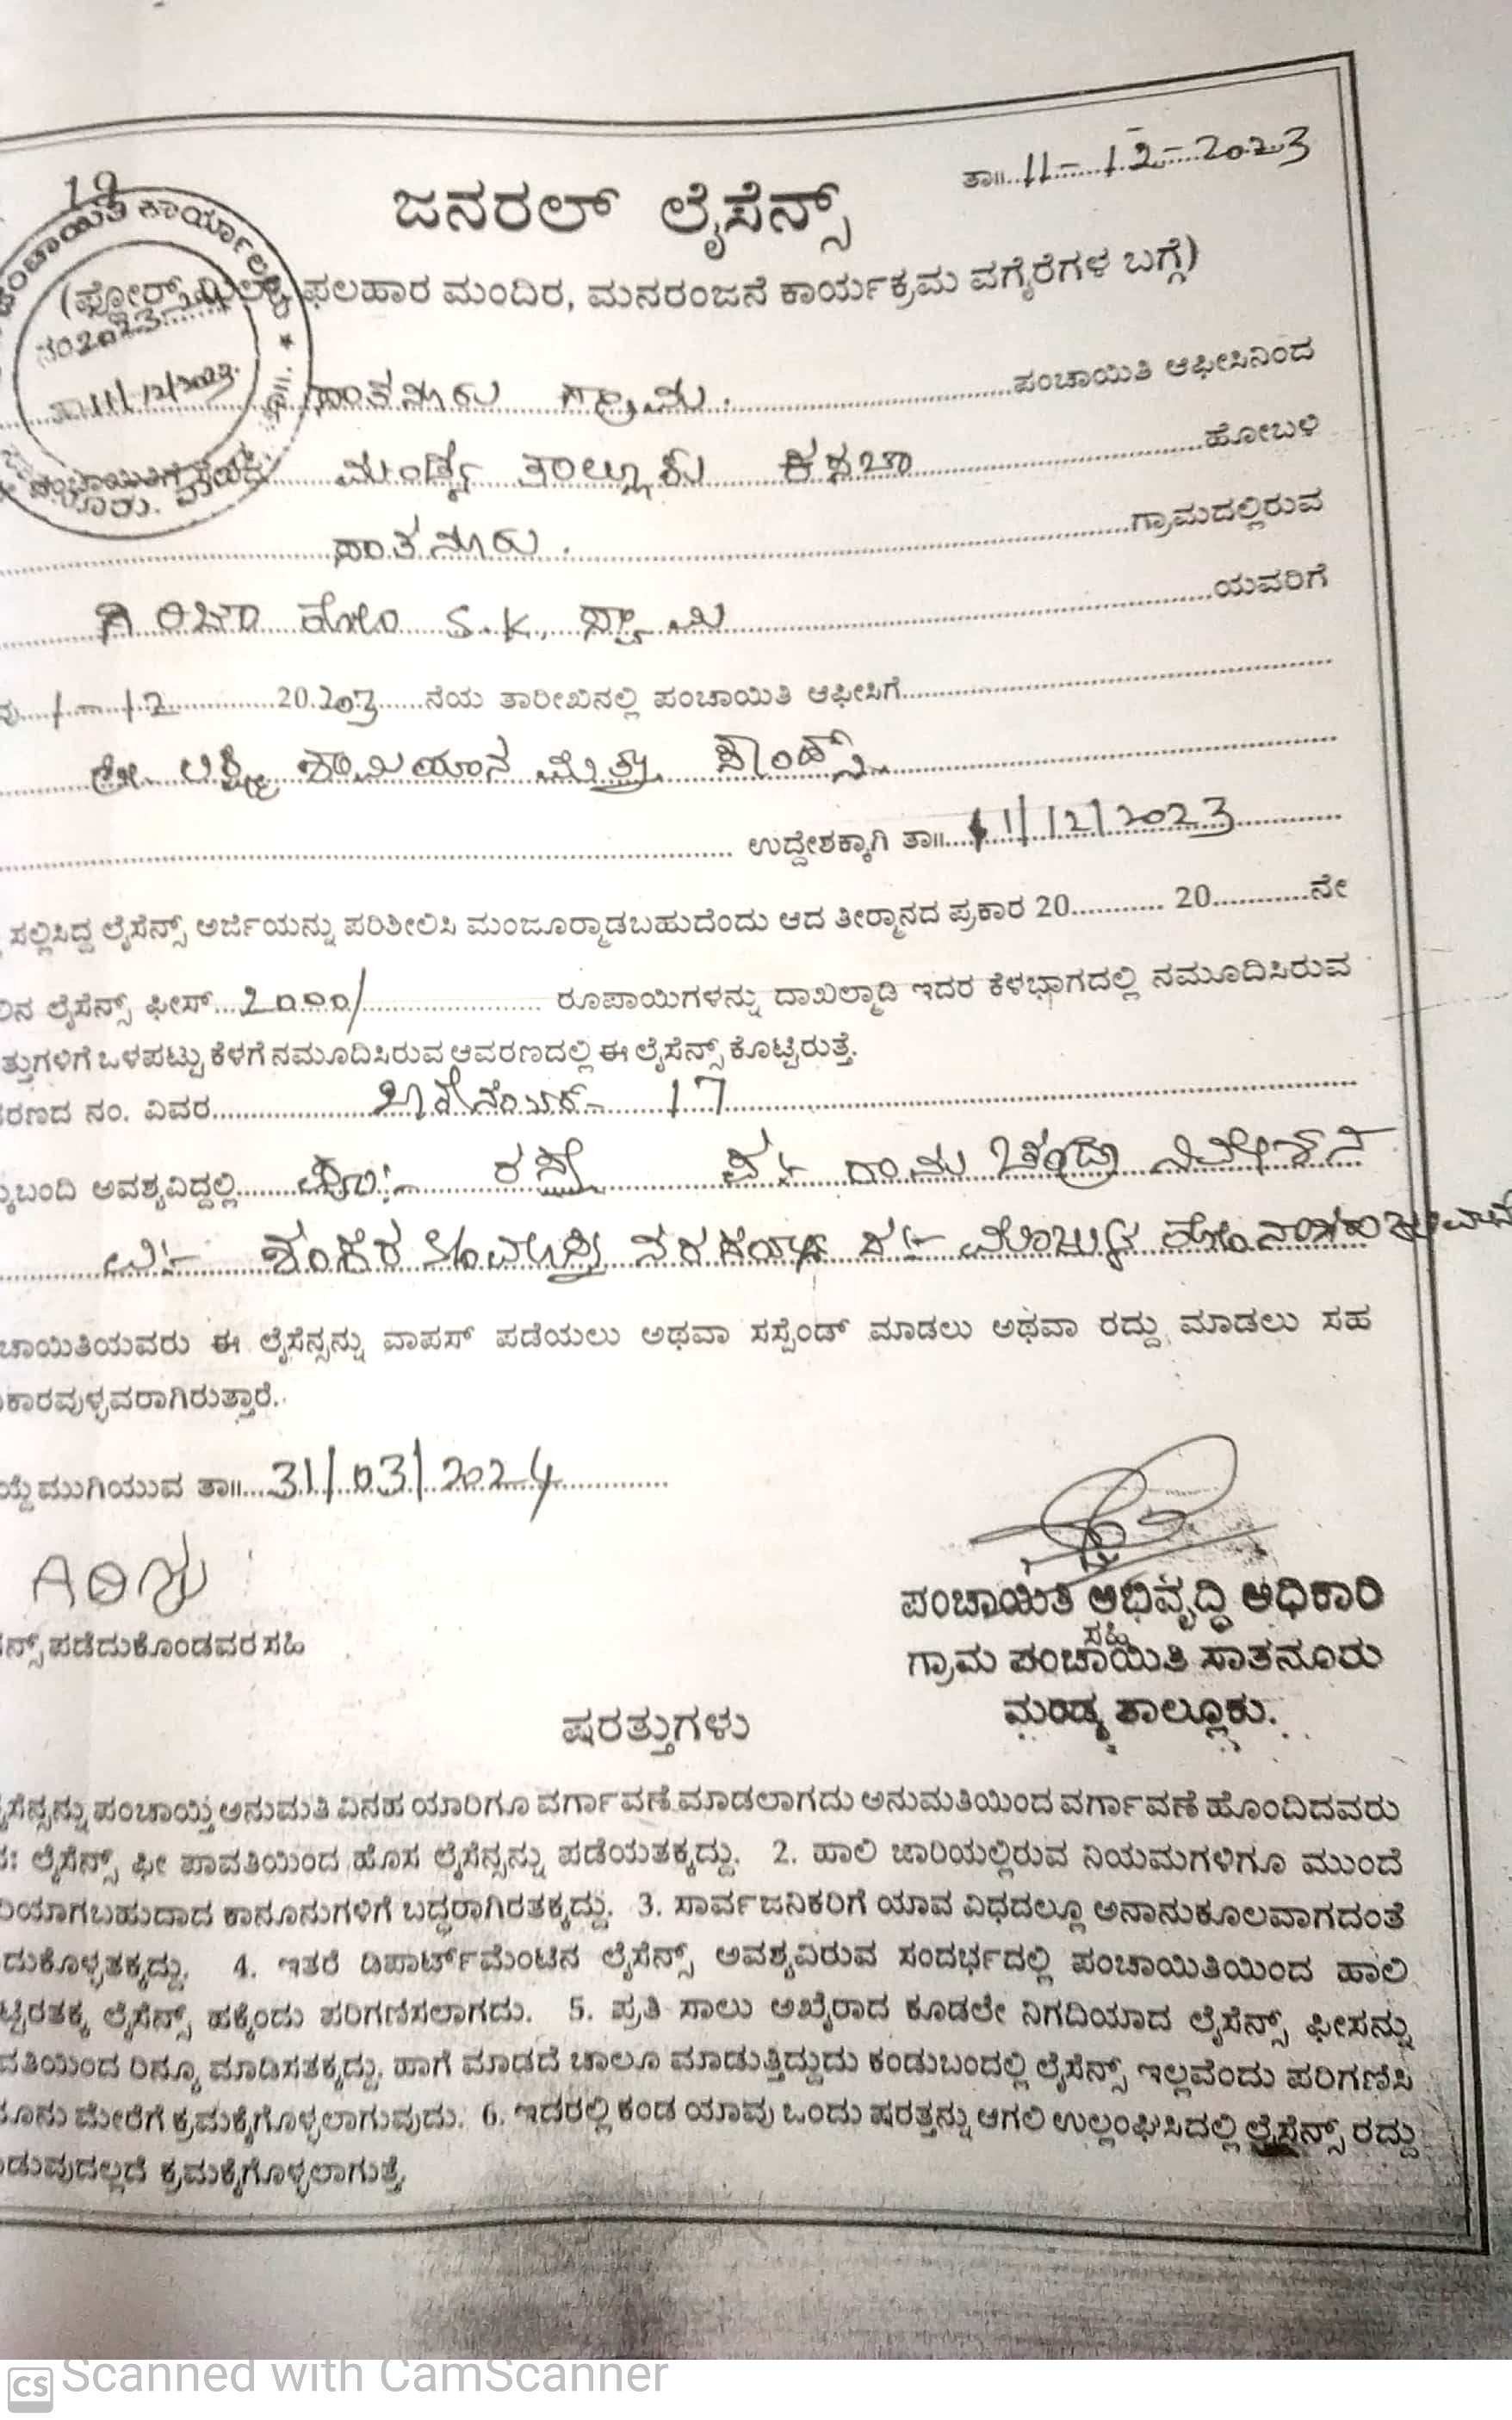 19
ತಾ॥ 11-12-2023
ಜನರಲ್ ಲೈಸೆನ್ಸ್
(ಫ್ಲೋರ್ ಮಿಲ್ಸ್ ಫಲಹಾರ ಮಂದಿರ, ಮನರಂಜನೆ ಕಾರ್ಯಕ್ರಮ ವಗೈರೆಗಳ ಬಗ್ಗೆ)
ಸಾತನೂರು ಗ್ರಾಮ. ಪಂಚಾಯಿತಿ ಆಫೀಸಿನಿಂದ
ಮಂಡ್ಯ ತಾಲ್ಲೂಕು ಕಸಬಾ ಹೋಬಳಿ
ಸಾತನೂರು. ಗ್ರಾಮದಲ್ಲಿರುವ
ಗಿರಿಜಾ ಕೋಂ S.K. ಸ್ವಾಮಿ ಯವರಿಗೆ
ವು 1-12 20.203 ನೆಯ ತಾರೀಖಿನಲ್ಲಿ ಪಂಚಾಯಿತಿ ಆಫೀಸಿಗೆ
ಶ್ರೀ ಲಕ್ಷ್ಮೀ ಶಾಮಿಯಾನ ಮತ್ತು ಸೌಂಡ್ಸ್
ಉದ್ದೇಶಕ್ಕಾಗಿ ತಾ॥ 11/12/2023
ಸಲ್ಲಿಸಿದ್ದ ಲೈಸೆನ್ಸ್ ಅರ್ಜಿಯನ್ನು ಪರಿಶೀಲಿಸಿ ಮಂಜೂರ್ಮಾಡಬಹುದೆಂದು ಆದ ತೀರ್ಮಾನದ ಪ್ರಕಾರ 20........... 20............ನೇ
ಲಿನ ಲೈಸೆನ್ಸ್ ಫೀಸ್ 2000/ ರೂಪಾಯಿಗಳನ್ನು ದಾಖಲ್ಮಾಡಿ ಇದರ ಕೆಳಭಾಗದಲ್ಲಿ ನಮೂದಿಸಿರುವ
ತ್ತುಗಳಿಗೆ ಒಳಪಟ್ಟು ಕೆಳಗೆ ನಮೂದಿಸಿರುವ ಆವರಣದಲ್ಲಿ ಈ ಲೈಸೆನ್ಸ್ ಕೊಟ್ಟಿರುತ್ತೆ.
ರಣದ ನಂ. ವಿವರ 17
ಕುಬಂದಿ ಅವಶ್ಯವಿದ್ದಲ್ಲಿ ಪೂ:- ರಸ್ತೆ ಪ:- ರಾಮಚಂದ್ರ ನಿವೇಶನ
ಉ:- ಶಂಕರ ದ:-
ಚಾಯಿತಿಯವರು ಈ ಲೈಸೆನ್ಸನ್ನು ವಾಪಸ್ ಪಡೆಯಲು ಅಥವಾ ಸಸ್ಪೆಂಡ್ ಮಾಡಲು ಅಥವಾ ರದ್ದು ಮಾಡಲು ಸಹ
ಕಾರವುಳ್ಳವರಾಗಿರುತ್ತಾರೆ.
ಯ್ದೆ ಮುಗಿಯುವ ತಾ॥ 31/03/2024
ನ್ಸ್ ಪಡೆದುಕೊಂಡವರ ಸಹಿ
ಪಂಚಾಯಿತಿ ಅಭಿವೃದ್ಧಿ ಅಧಿಕಾರಿ
ಸಹಿ
ಗ್ರಾಮ ಪಂಚಾಯಿತಿ ಸಾತನೂರು
ಮಂಡ್ಯ ತಾಲ್ಲೂಕು.
ಷರತ್ತುಗಳು
ಸೆನ್ಸನ್ನು ಪಂಚಾಯ್ತಿ ಅನುಮತಿ ವಿನಹ ಯಾರಿಗೂ ವರ್ಗಾವಣೆ ಮಾಡಲಾಗದು ಅನುಮತಿಯಿಂದ ವರ್ಗಾವಣೆ ಹೊಂದಿದವರು
ನಃ ಲೈಸೆನ್ಸ್ ಫೀ ಪಾವತಿಯಿಂದ ಹೊಸ ಲೈಸೆನ್ಸನ್ನು ಪಡೆಯತಕ್ಕದ್ದು. 2. ಹಾಲಿ ಜಾರಿಯಲ್ಲಿರುವ ನಿಯಮಗಳಿಗೂ ಮುಂದೆ
ರಿಯಾಗಬಹುದಾದ ಕಾನೂನುಗಳಿಗೆ ಬದ್ಧರಾಗಿರತಕ್ಕದ್ದು. 3. ಸಾರ್ವಜನಿಕರಿಗೆ ಯಾವ ವಿಧದಲ್ಲೂ ಅನಾನುಕೂಲವಾಗದಂತೆ
ದುಕೊಳ್ಳತಕ್ಕದ್ದು. 4. ಇತರೆ ಡಿಪಾರ್ಟ್‌ಮೆಂಟಿನ ಲೈಸೆನ್ಸ್ ಅವಶ್ಯವಿರುವ ಸಂದರ್ಭದಲ್ಲಿ ಪಂಚಾಯಿತಿಯಿಂದ ಹಾಲಿ
ಟ್ಟಿರತಕ್ಕ ಲೈಸೆನ್ಸ್ ಹಕ್ಕೆಂದು ಪರಿಗಣಿಸಲಾಗದು. 5. ಪ್ರತಿ ಸಾಲು ಅಖೈರಾದ ಕೂಡಲೇ ನಿಗದಿಯಾದ ಲೈಸೆನ್ಸ್ ಫೀಸನ್ನು
ವತಿಯಿಂದ ರಿನ್ಯೂ ಮಾಡಿಸತಕ್ಕದ್ದು, ಹಾಗೆ ಮಾಡದೆ ಚಾಲೂ ಮಾಡುತ್ತಿದ್ದುದು ಕಂಡುಬಂದಲ್ಲಿ ಲೈಸೆನ್ಸ್ ಇಲ್ಲವೆಂದು ಪರಿಗಣಿಸಿ
ನೂನು ಮೇರೆಗೆ ಕ್ರಮಕೈಗೊಳ್ಳಲಾಗುವುದು. 6. ಇದರಲ್ಲಿ ಕಂಡ ಯಾವು ಒಂದು ಷರತ್ತನ್ನು ಆಗಲಿ ಉಲ್ಲಂಘಿಸಿದಲ್ಲಿ ಲೈಸೆನ್ಸ್ ರದ್ದು
ಡುವುದಲ್ಲದೆ ಕ್ರಮಕೈಗೊಳ್ಳಲಾಗುತ್ತೆ.
CS Scanned with CamScanner